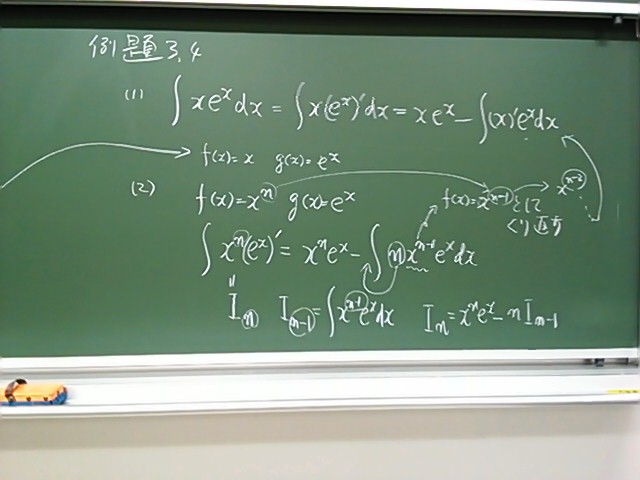 例題3.4
(1) ∫xeˣdx = ∫x(eˣ)'dx = xeˣ - ∫(x)'eˣdx
f(x)=x g(x)=eˣ
(2) f(x)=xⁿ g(x)=eˣ f(x)=xⁿ⁻¹として xⁿ⁻²
くり返す
∫xⁿ(eˣ)' = xⁿeˣ - ∫nxⁿ⁻¹eˣdx
||
Iₙ Iₙ₋₁=∫xⁿ⁻¹eˣdx Iₙ=xⁿeˣ-nIₙ₋₁